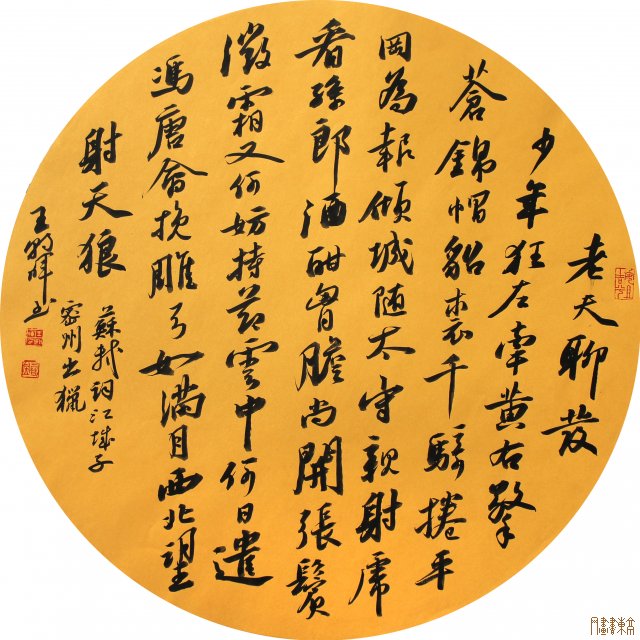 老夫聊發
少年狂左牽黃右擎
蒼錦帽貂裘千騎捲平
岡為報傾城隨太守親射虎
看孫郎酒酣胷膽尚開張鬢
微霜又何妨持節雲中何日遣
馮唐會挽雕弓如滿月西北望
射天狼
蘇軾詞江城子
密州出獵
王
书